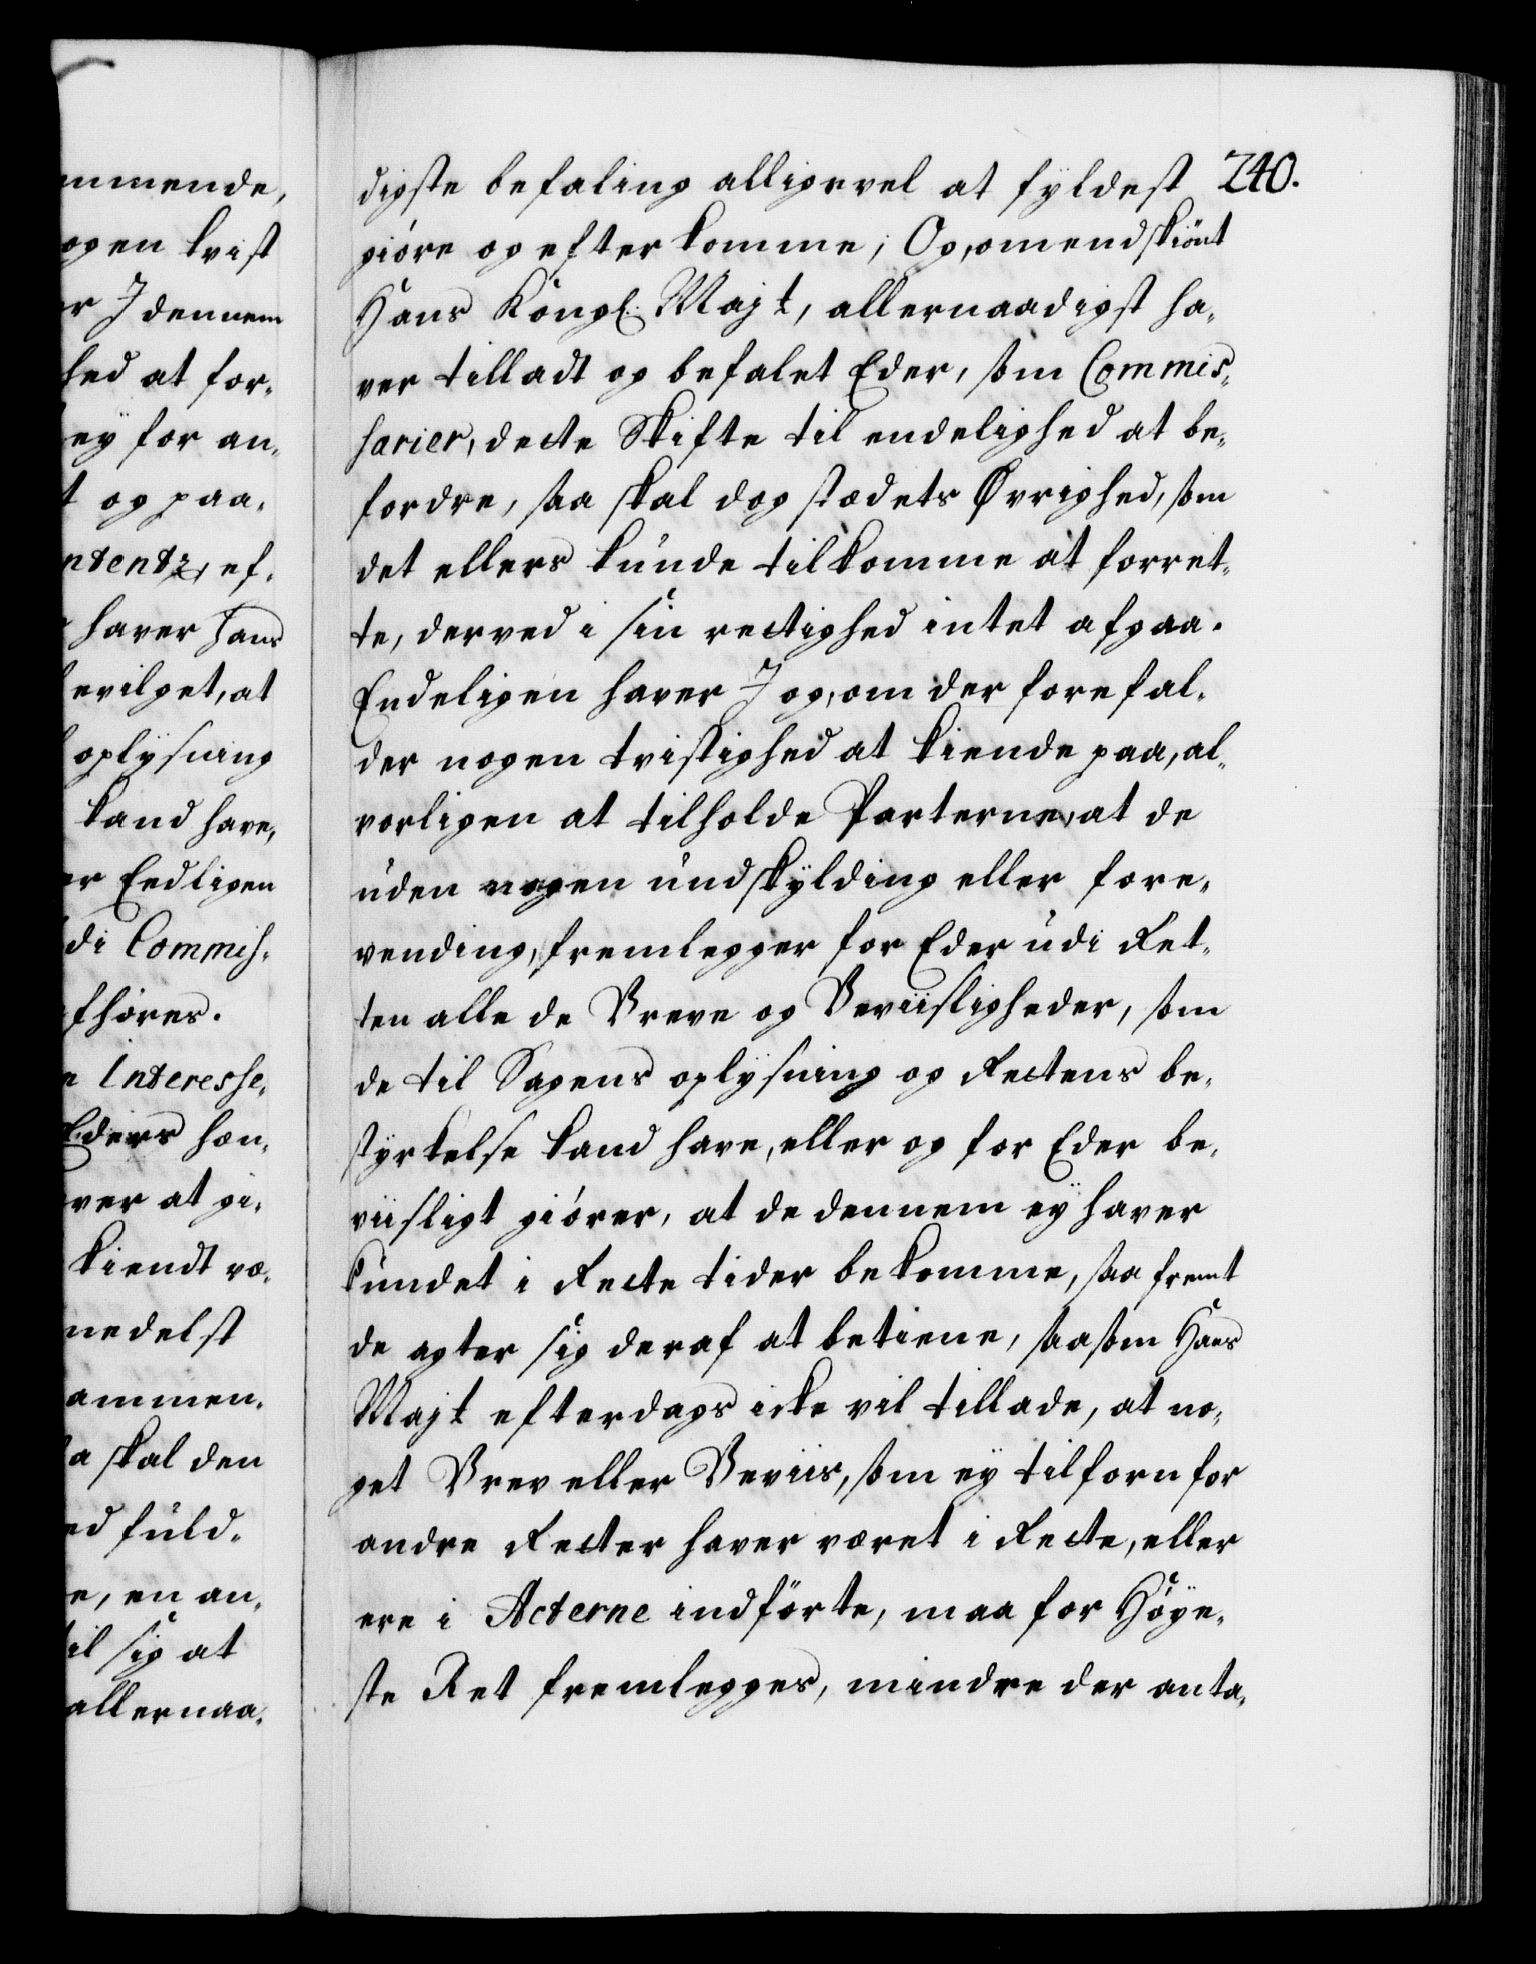 mmende,
ogen tvist
er I dennem
hed at for-
ey for an-
t og paa-
ntentz, ef-
haver Hans
evilget, at
oplysning
kand have,
er Endligen
di Commis-
fhøres.
n Interesse-
Elders hæn-
ver at gi-
kiendt væ-
nedelst
ammen-
a skal den
ed fuld-
e, en an-
til sig at
allernaa-
240.
digste befaling alligevel at fyldest
giöre og efterkomme; Og, omendskiönt
Hans Kongl: Majt, allernaadigst ha-
ver tilladt og befalet Eder, som Commis-
sarier, dette Skifte til endelighed at be-
fordre, saa skal dog stædets Øvrighed, som
det ellers kunde tilkomme at forret-
te, derved i sin rettighed intet afgaa.
Endeligen haver I og, om der forefal-
der nogen tvistighed at kiende paa, al-
vorligen at tilholde Parterne, at de
uden nogen undskylding eller fore-
vending, fremlegger for Eder udi Ret-
ten alle de Breve og Beviisligheder, som
de til Sagens oplysning og Rettens be-
styrkelse kand have, eller og for Eder be-
viisligt giörer, at de dennem ey haver
kundet i Rette tider bekomme, saa fremt
de agter sig deraf at betiene, saasom Hans
Majt efterdags icke vil tillade, at no-
get Brev eller Beviis, som ey tilforn for
andre Retter haver været i Rette, eller
ere i Acterne indförte, maa for Höye-
ste Ret fremlegges, mindre der anta-